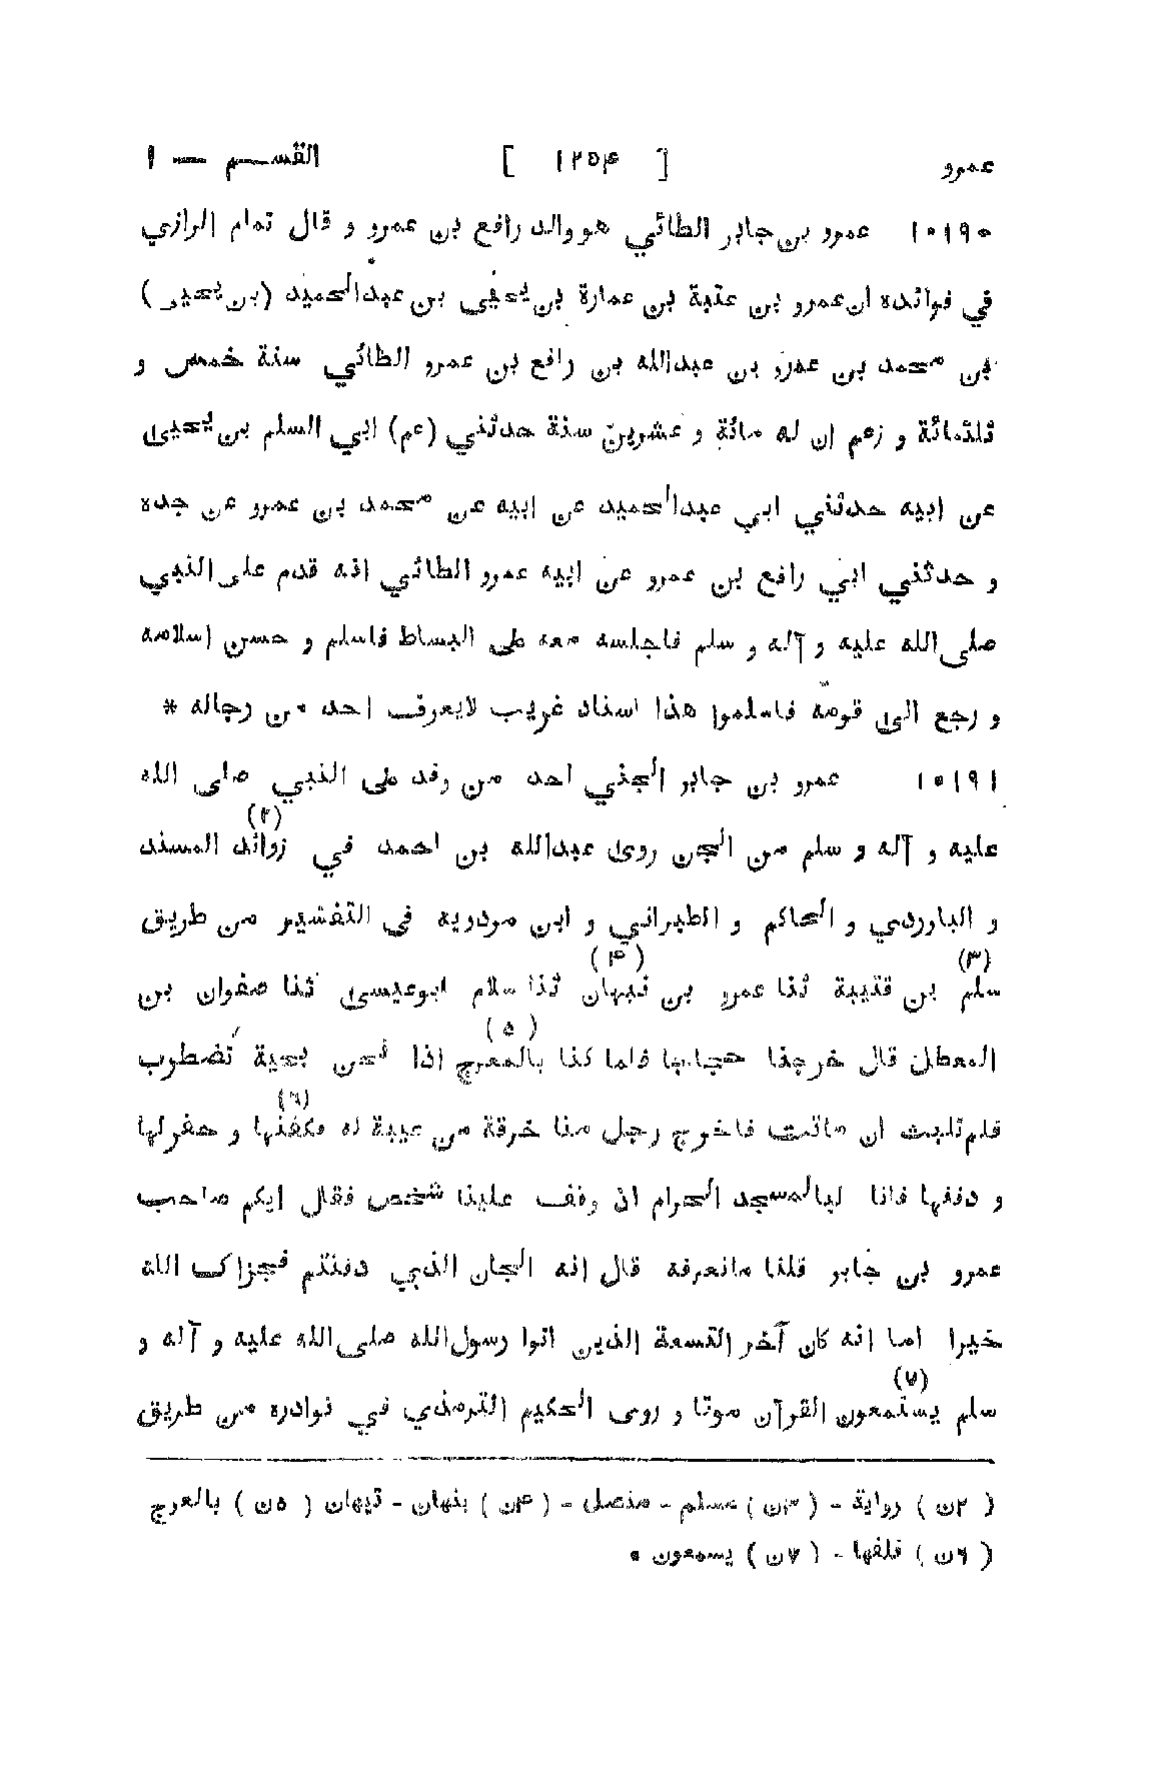 عمرو [ ١٢٥۴ ] القسم — ١
١٠١٩٠ عمرو بن جابر الطائي هو والد رافع بن عمرو و قال تمام الرازي
في فوائده ان عمرو بن عتبة بن عمارة بن يحيى بن عبدالحميد (بن يحيى)
بن محمد بن عمرو بن عبدالله بن رافع بن عمرو الطائي سنة خمس و
ثلثمائة و زعم ان له مائة و عشرين سنة حدثني (عم) ابي السلم بن يحيى
عن ابيه حدثني ابي عبدالحميد عن ابيه عن محمد بن عمرو عن جده
و حدثني ابي رافع بن عمرو عن ابيه عمرو الطائي انه قدم على النبي
صلى الله عليه و آله و سلم فاجلسه معه على البساط فاسلم و حسن اسلامه
و رجع الى قومه فاسلموا هذا اسناد غريب لايعرف احد من رجاله *
١٠١٩١ عمرو بن جابر الجني احد من وفد على النبي صلى الله
عليه و آله و سلم من الجن روى عبدالله بن احمد في زوائد (٢) المسند
و الباوردي و الحاكم و الطبراني و ابن مردويه في التفسير من طريق
سلم (٣) بن قتيبة ثنا عمرو بن نبهان (۴) ثنا سلام ابوعيسى ثنا صفوان بن
المعطل قال خرجنا حجاجا فلما كنا بالمعرج (٥) اذا نحن بحية تضطرب
فلم تلبث ان ماتت فاخرج رجل منا خرقة من عيبة له فكفنها (٦) و حفرلها
و دفنها فانا لبالمسجد الحرام اذ وقف علينا شخص فقال ايكم صاحب
عمرو بن جابر قلنا مانعرفه قال انه الجان الذي دفنتم فجزاك الله
خيرا اما انه كان آخر التسعة الذين اتوا رسول الله صلى الله عليه و آله و
سلم يستمعون (٧) القرآن موتا و روى الحكيم الترمذي في نوادره من طريق
( ٢ن ) رواية - ( ٣ن ) مسلم - متصل - ( ۴ن ) بنهان - تيهان ( ٥ن ) بالعرج
( ٦ن ) فلفها - ( ٧ن ) يسمعون •